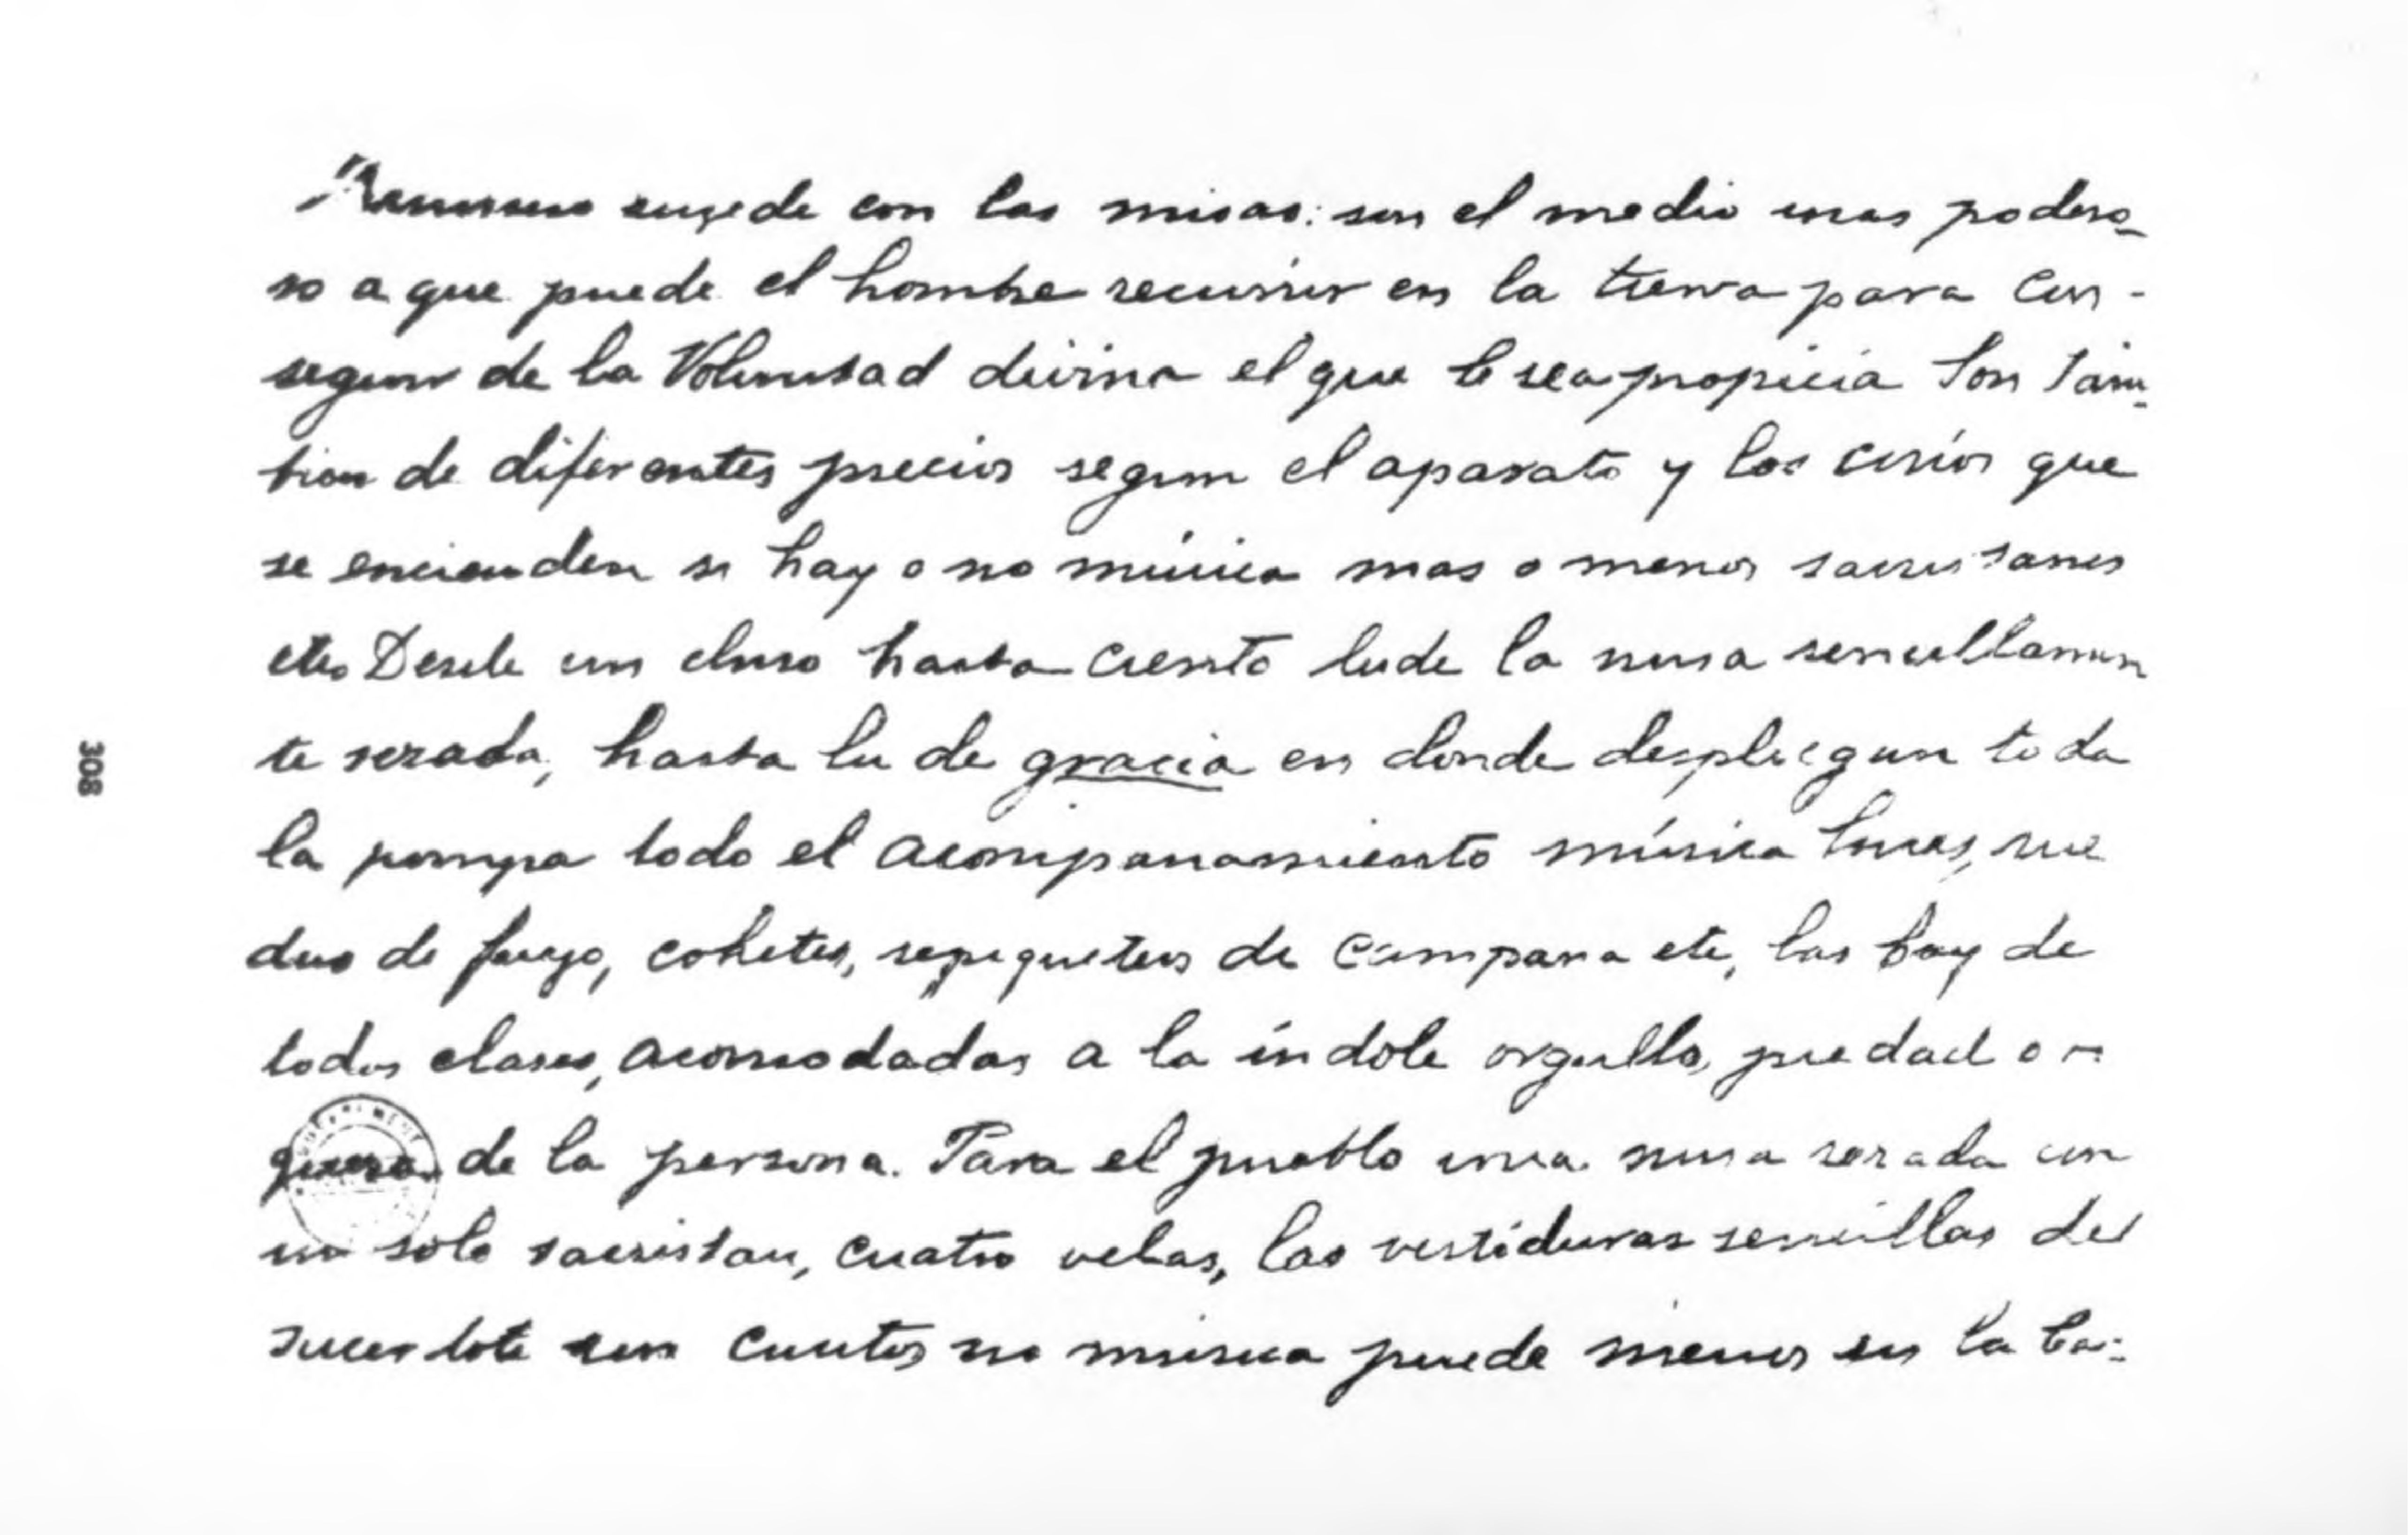 sucede con las misas: son el medio mas podero-
so a que puede el hombre recurrir en la tierra para con-
seguir de la Voluntad divina el que le sea propicia Son tam-
bien de diferentes precios segun el aparato y los cirios que
se encienden si hay o no música mas o menos sacristanes
etc Desde un duro hasta ciento la de la misa sencillamen
te rezada, hasta la de gracia en donde despliegan toda
la pompa todo el acompanamiento música luces, rue
das de fuego, cohetes, repiqueteos de campana etc, las hay de
todas clases, acomodadas a la índole orgullo, piedad o ri
queza de la persona. Para el pueblo una misa rezada con
un solo sacristan, cuatro velas, las vestiduras sencillas del
sacerdote sin cantos no música puede menos en la ba-
308